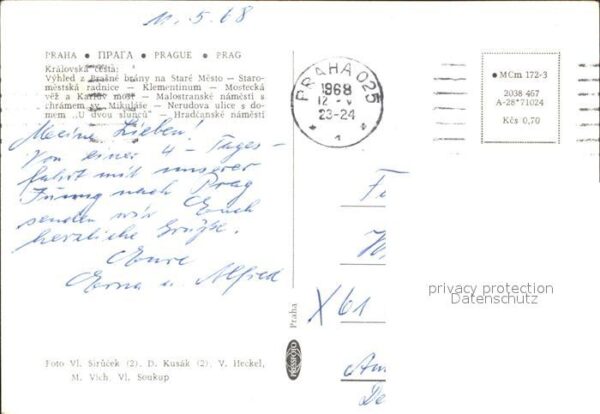 11.5.68
PRAHA • ПРАГА • PRAGUE • PRAG
Královská cesta:
Výhled z Prašné brány na Staré Město — Staro-
městská radnice — Klementinum — Mostecká
věž a Karlův most — Malostranské náměstí s
chrámem sv. Mikuláše — Nerudova ulice s do-
mem „U dvou slunců" — Hradčanské náměstí
Meine Lieben!
Von einer 4-Tages-
fahrt mit unserer
Innung nach Prag
senden wir Euch
herzliche Grüße.
Eure
Erna u. Alfred
Foto Vl. Sirůček (2), D. Kusák (2), V. Heckel,
M. Vích, Vl. Soukup
Praha
PRESSFOTO
PRAHA 025
1968
12 V
23-24
1
• MCm 172-3
2038 467
A-28*71024
Kčs 0,70
X61
privacy protection
Datenschutz